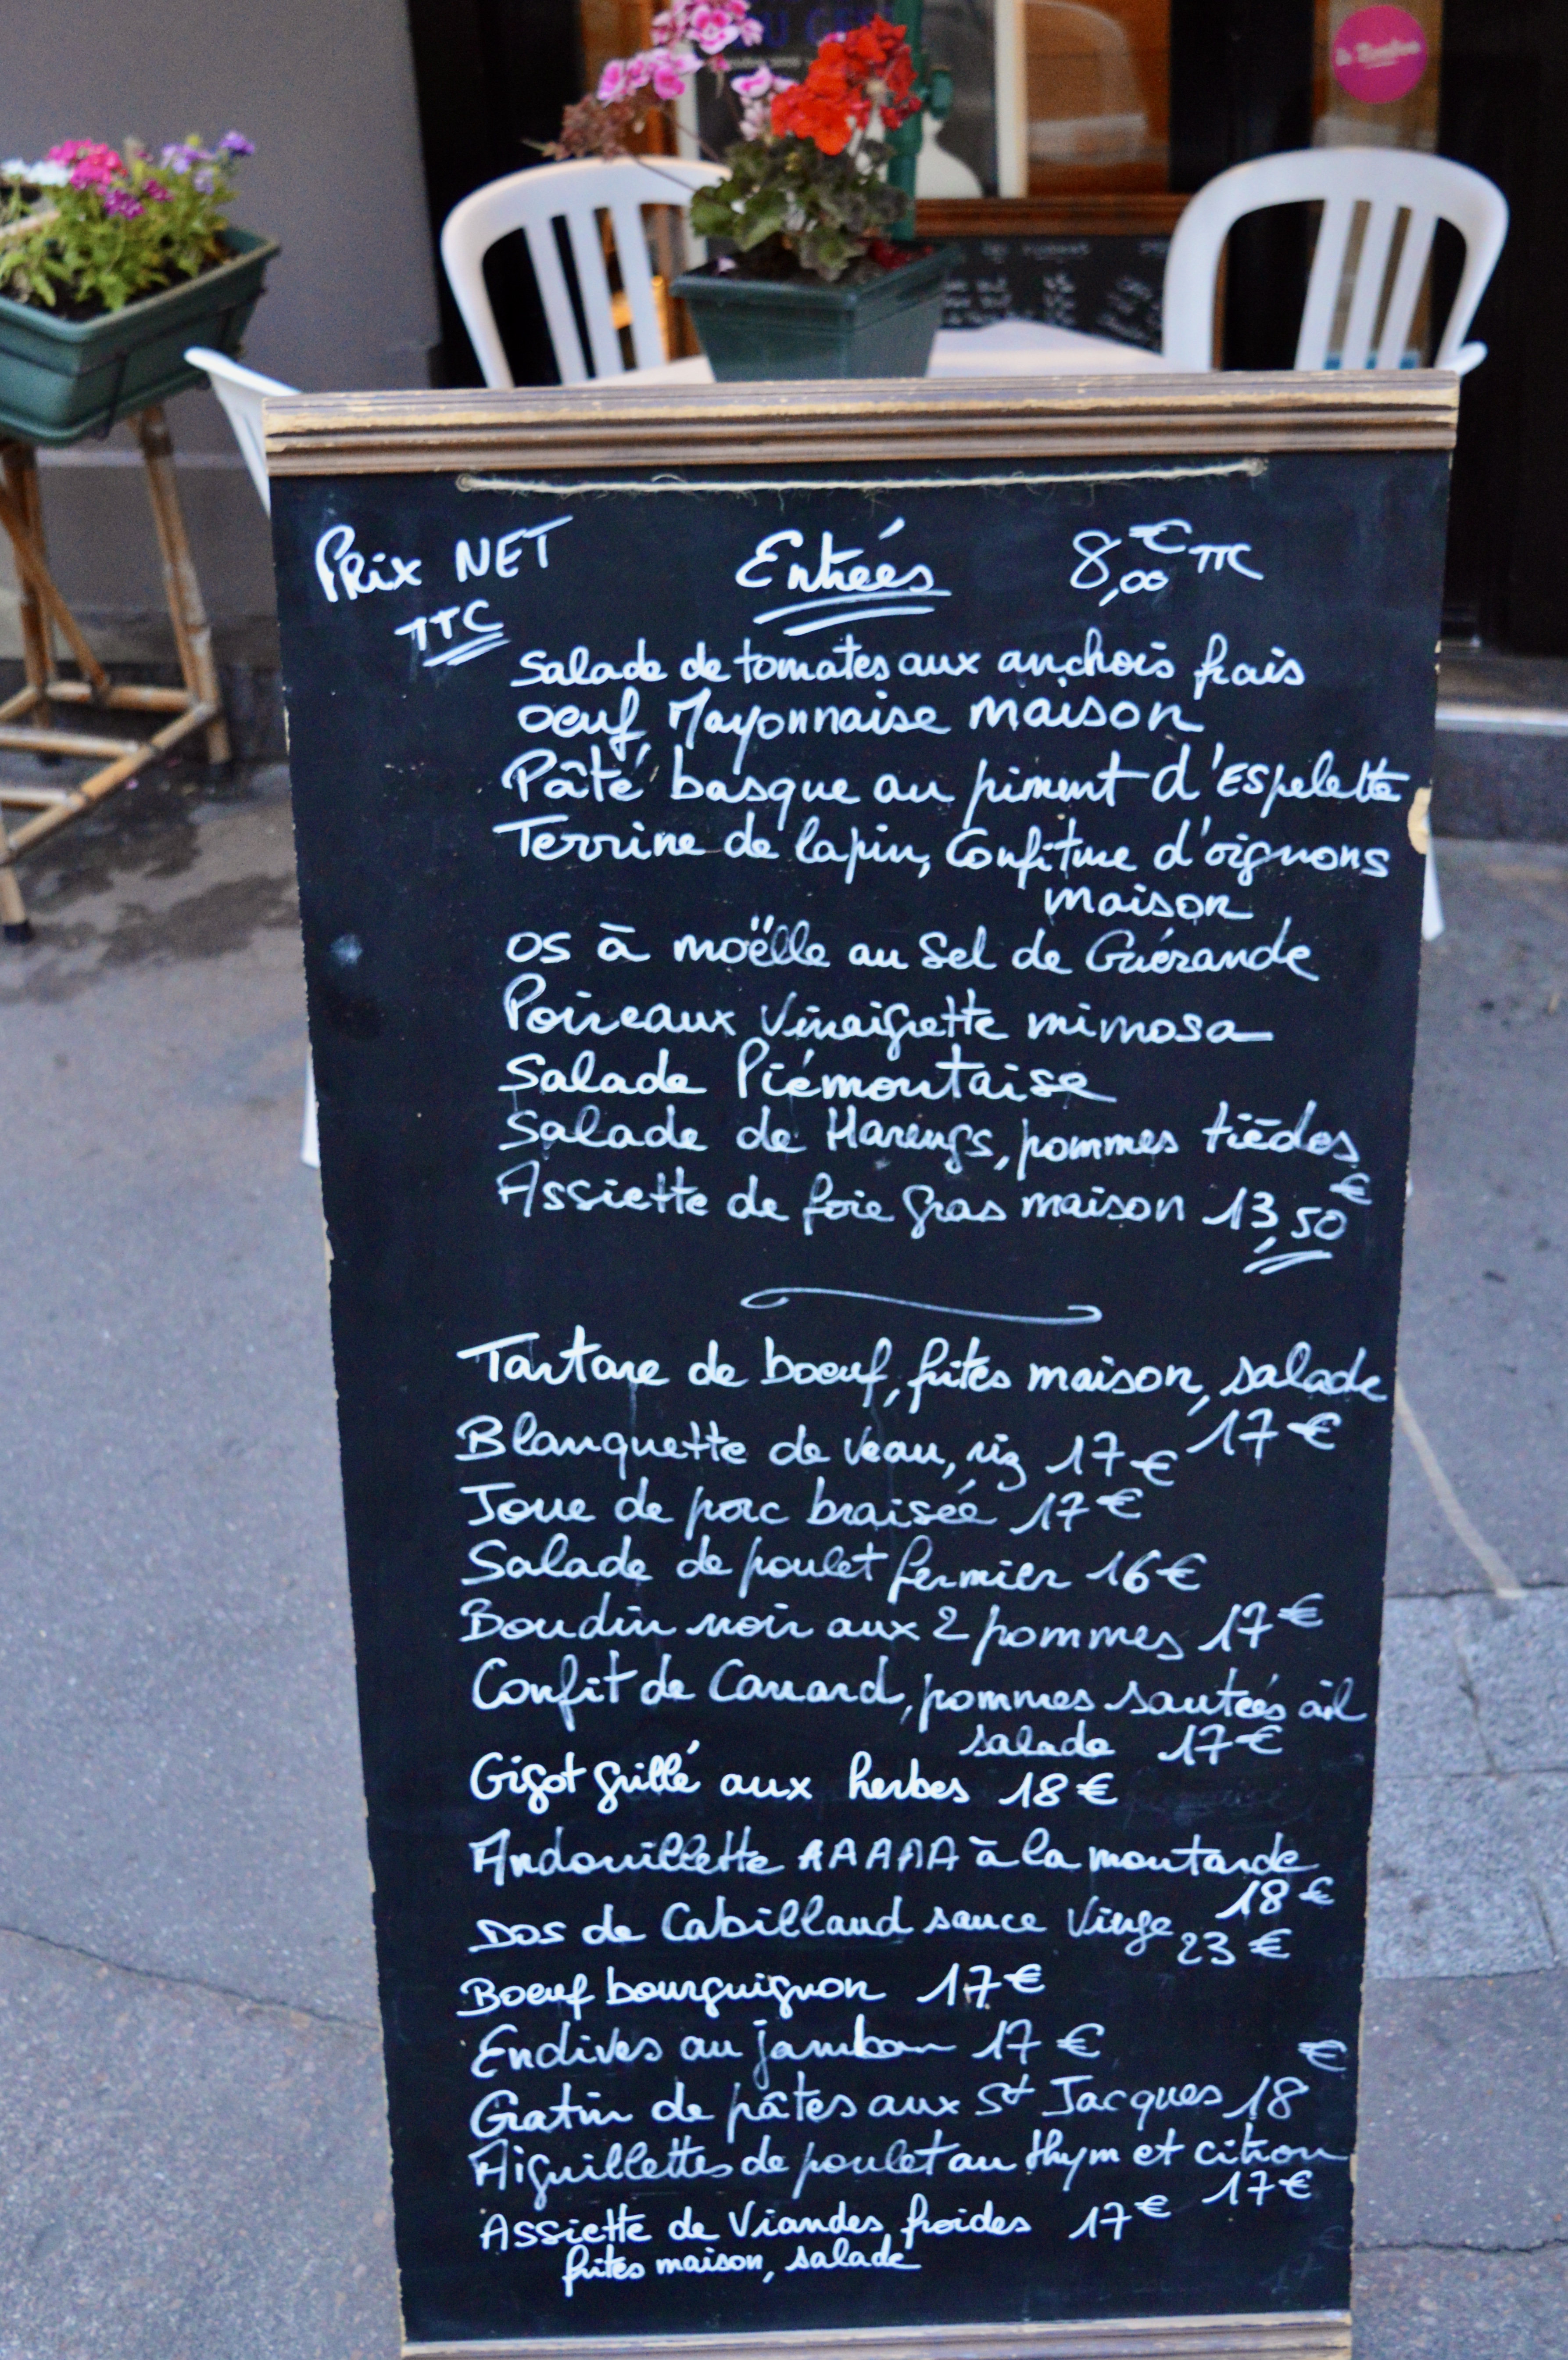 Prix NET
TTC
Entrées
8,00€ TTC
Salade de tomates aux anchois frais
oeuf Mayonnaise maison
Pâté basque au piment d'Espelette
Terrine de lapin, Confiture d'oignons
maison
os à moëlle au Sel de Guérande
Poireaux Vinaigrette mimosa
Salade Piémontaise
Salade de Harengs, pommes tièdes
Assiette de foie gras maison 13,50€
Tartare de boeuf, frites maison, salade
17€
Blanquette de veau, riz 17€
Joue de porc braisée 17€
Salade de poulet fermier 16€
Boudin noir aux 2 pommes 17€
Confit de Canard, pommes sautées ail
salade 17€
Gigot grillé aux herbes 18€
Andouillette AAAAA à la moutarde
18€
Dos de Cabillaud sauce Vierge 23€
Boeuf bourguignon 17€
Endives au jambon 17€
Gratin de pâtes aux St Jacques 18€
Aiguillettes de poulet au thym et citron
17€
Assiette de Viandes froides 17€
frites maison, salade